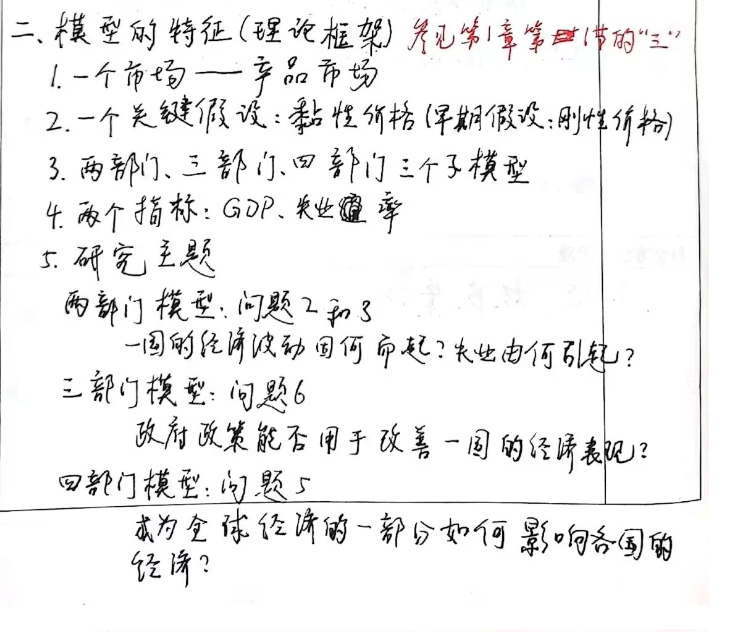 二、模型的特征(理论框架) 参见第1章第1节的"三"
1. 一个市场——产品市场
2. 一个关键假设:黏性价格(早期假设:刚性价格)
3. 两部门、三部门、四部门三个子模型
4. 两个指标:GDP、失业率
5. 研究主题
两部门模型:问题2和3
一国的经济波动因何而起?失业由何引起?
三部门模型:问题6
政府政策能否用于改善一国的经济表现?
四部门模型:问题5
成为全球经济的一部分如何影响各国的
经济?